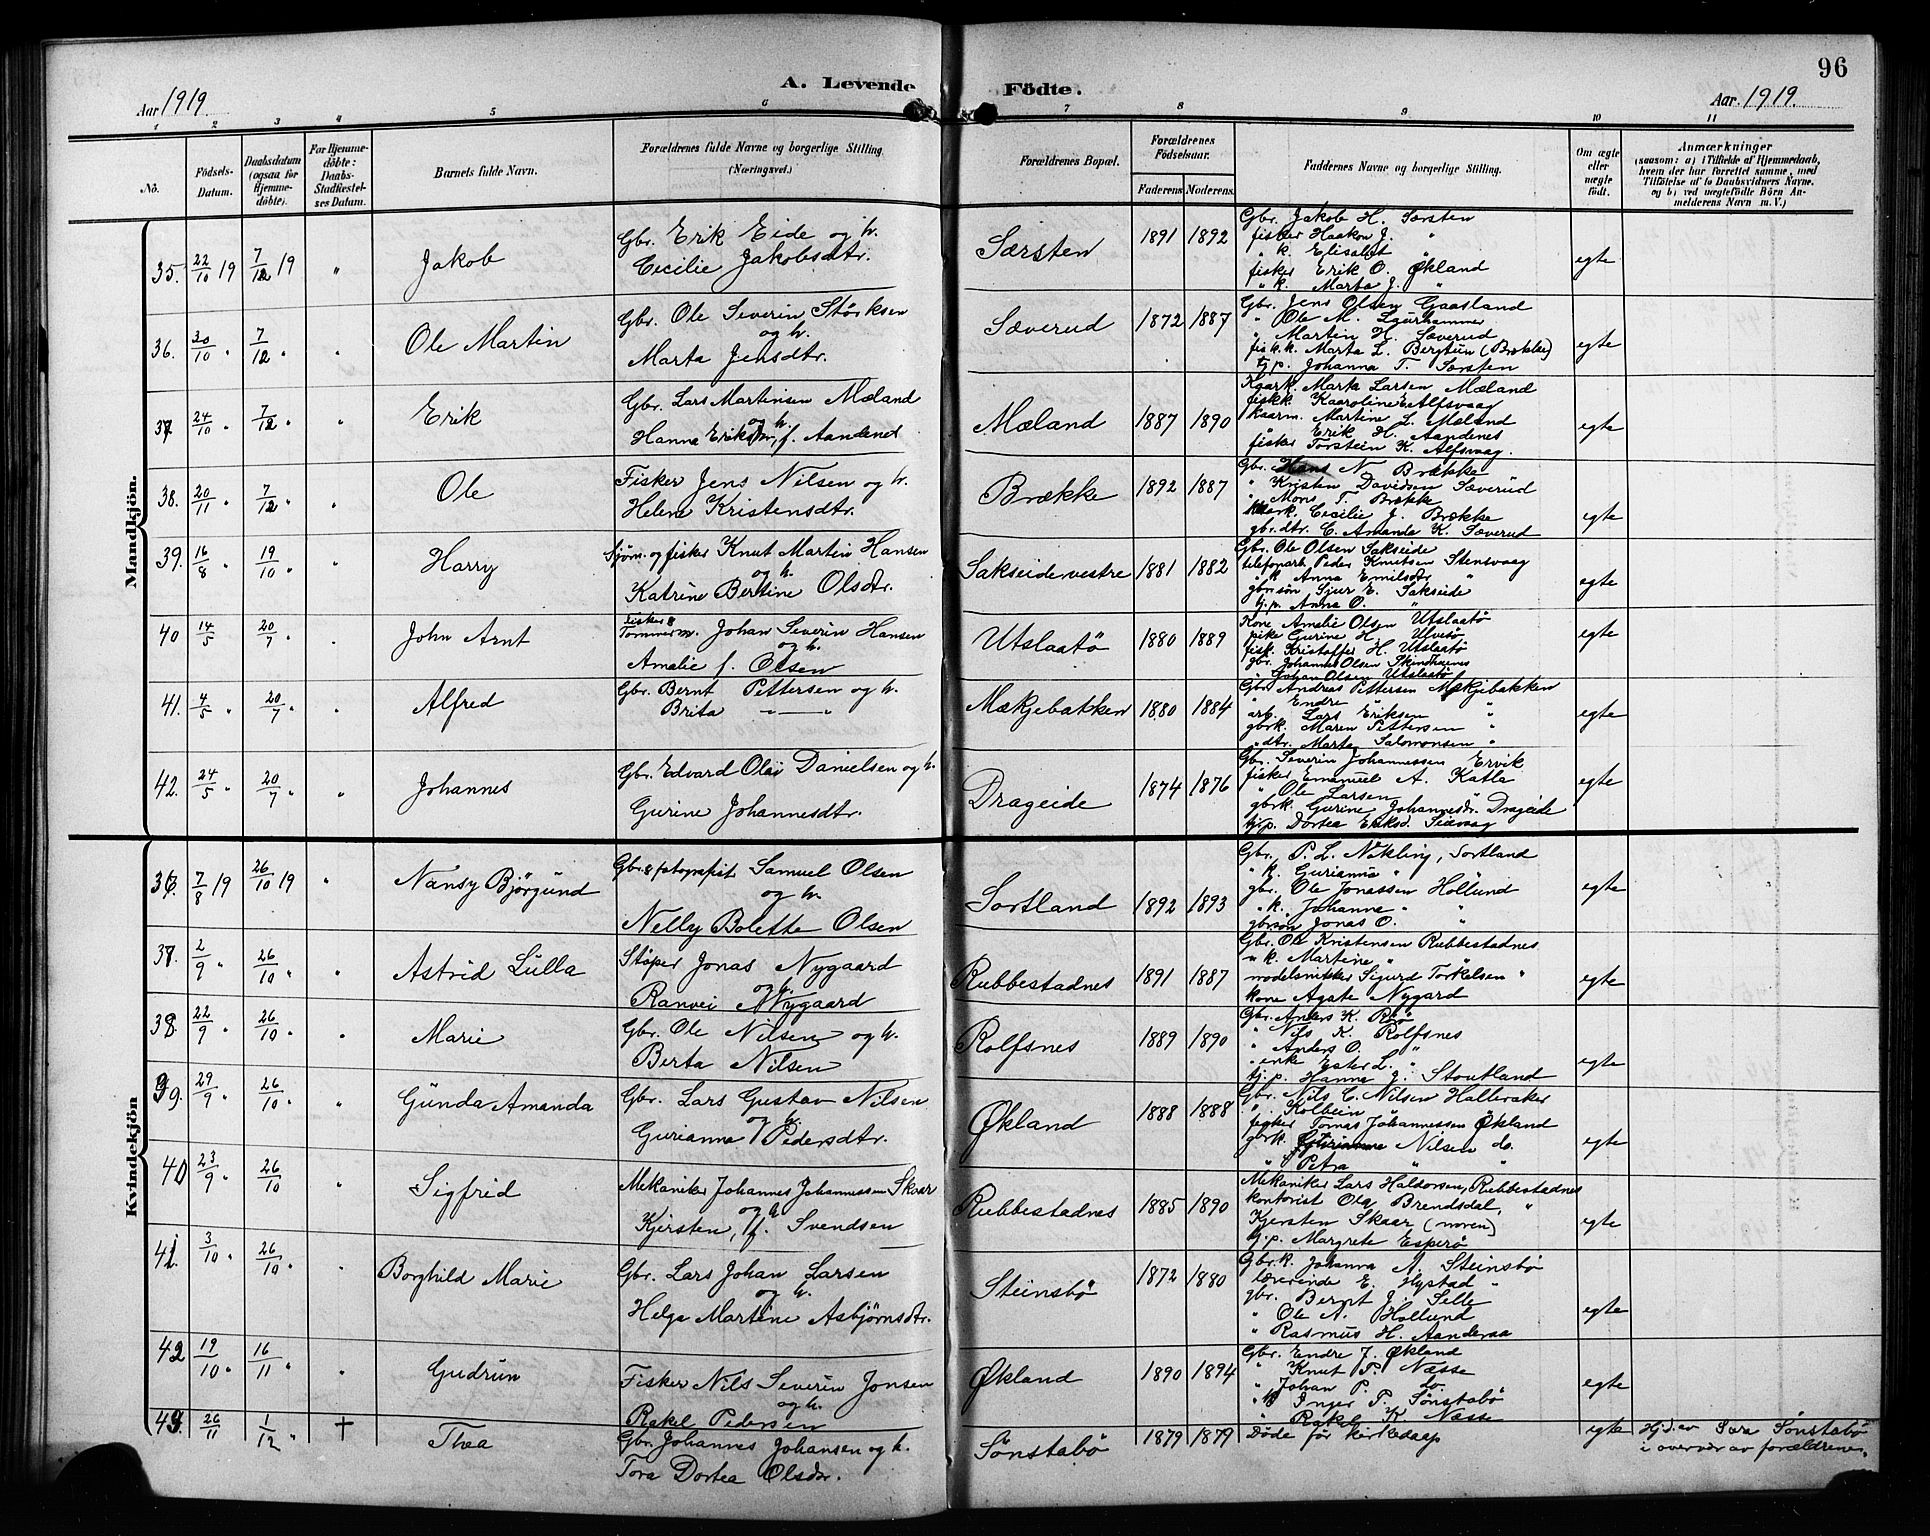 96
A. Levende Födte.
Aar 1919
Aar 1919.
1 2 3 4 5 6 7 8 9 10 11
No.
Födsels-Datum.
Daabsdatum (ogsaa for Hjemmedöbte).
For Hjemmedöbte: Daabs-Stadfæstelses Datum.
Barnets fulde Navn.
Forældrenes fulde Navne og borgerlige Stilling. (Næringsvei.)
Forældrenes Bopæl.
Forældrenes Födselsaar.
Faderens Moderens.
Faddernes Navne og borgerlige Stilling.
Om ægte eller uægte födt.
Anmærkninger
(saasom: a) i Tilfælde af Hjemmedaab, hvem der har forrettet samme, med Tilföielse af to Daabsvidners Navne, og b) ved uægtefödte Börn Anmelderens Navn m. V.)
Mandkjön.
35. 22/10 19 7/12 19 " Jakob
Gbr. Erik Eide og h.
Cecilie Jakobsdtr.
Særsten 1891 1892
Gbr. Jakob H. Særsten
fisker Haakon J. "
" k. Elisabet "
fisker Erik O. Økland
" k. Marta J. "
egte
36. 30/10 " 7/12 " " Ole Martin
Gbr. Ole Severin Størksen
og h.
Marta Jensdtr.
Sæverud 1872 1887
Gbr. Jens Olsen Gaasland
" Ole M.
" Martin H. Sæverud
fisk.k. Marta L. Bergtun (Brække)
tj.p. Johanna T. Særsten
egte
37. 24/10 " 7/12 " " Erik
Gbr. Lars Martinsen Mæland
og h.
Hanna f. Aandenes
Mæland 1887 1890
Kaark. Marta Larsen Mæland
fiskk. Karoline E. Alfsvaag
kaarm. Martine L. Mæland
" Erik H. Aandenes
fisker Torstein K. Alfsvaag.
egte
38. 20/11 " 7/12 " " Ole
Fisker Jens Nilsen og h.
Helene Kristensdtr.
Brække 1892 1887
Gbr. Hans N. Brække
" Kristen Davidsen Sæverud
" Mons T. Brække
Cecilie J. Brække
gbr.dtr. C. Amanda K. Sæverud
egte
39. 16/8 " 19/10 " " Harry
Sjøm. og fisker Knut Martin Hansen
og h.
Katrine Bertine Olsdtr.
Sakseide vestre 1881 1882
Gbr. Ole Olsen Sakseide
telefonarb. Peder Knutsen Stensvaag
" k. Anna Emilsdtr "
gbrsøn Sjur E. Sakseide
tj.p. Anna O. "
egte
40 14/5 " 20/7 " John Arnt
Fisker &
Tømmerm. Johan Severin Hansen
og h.
Amalie f. Olsen
Utslaatø 1880 1889
Kone Amalie Olsen Utslaatø
pike Gurine H. Ulvesø
fisk. Kristoffer H. Utslaatø
gbr. Johannes Olsen
" Johan Olsen Utslaatø
egte
41. 4/5 " 20/7 " " Alfred
Gbr. Bernt Pettersen og h.
Brita —"—
Mækjebakken 1880 1884
Gbr. Andreas Pettersen Mækjebakken
" Endre "
arb. Lars Eriksen "
gbrk. Maren Pettersen
" dtr. Marta Salomonsen "
egte
42. 24/5 " 20/7 " " Johannes
Gbr. Edvard Olai Danielsen og h.
Gurine Johannesdtr.
Drageide 1874 1876
Gbr. Severin Johannessen Ervik
fisker Emanuel A. Katla
" Ole Larsen
gbrk. Gurine Johannesdr. Drageide
tj.p. Dortea Eriksd. Seivaag
egte
Kvindekjön
36. 7/8 19 26/10 19 " Nansy Björgund
Gbr. & fotografist Samuel Olsen
og h.
Nelly Bolette Olsen
Sortland 1892 1893
Gbr. P. L. Nækling, Sortland
" k. Gurianna "
gbr. Ole Jonassen Hollund
" k. Johanna " "
gbrsøn Jonas O. "
egte
37. 2/9 " 26/10 " " Astrid Lulla
Støper Jonas Nygaard
og h.
Ranvei Nygaard
Rubbestadnes 1891 1887
Gbr. Ole Kristensen Rubbestadnes
" k. Martine "
modelsnikker Sigurd Torkelsen "
kone Agate Nygard
egte
38. 22/9 " 26/10 " " Marie
Gbr. Ole Nilsen og h.
Berta Nilsen
Rolfsnes 1889 1890
Gbr. Anders K. Rø
" Nils K. Rolfsnes
" Anders O. "
" enke Ester L. "
tj.p. Hanna J. Stoutland
egte
39. 29/9 " 26/10 " " Gunda Amanda
Gbr. Lars Gustav Nilsen
og h.
Gurianna Pedersdtr.
Økland 1888 1888
Gbr. Nils C. Nilsen Halleraker
" Kolbein
fisker Tomas Johannessen Økland
gbrk. Gurianna Nilsen do.
" Petra " "
egte
40 23/9 " 26/10 " Sigfrid
Mekaniker Johannes Johannessen Skaar
og h.
Kjersten, f. Svendsen
Rubbestadnes 1885 1890
Mekaniker Lars Haldorsen, Rubbestadnes
kontorist Ola Brendsdal, "
Kjersten Skaar (moren)
tj.p. Margrete Esperø
egte
41. 3/10 " 26/10 " " Borghild Marie
Gbr. Lars Johan Larsen
og h.
Helga Martine Asbjørnsdtr.
Steinsbø 1872 1880
Gbr.k. Johanna A. Steinsbø
lærerinde E. Hystad "
gbr. Bernt J. Selle
" Ole A. Hollund
" Rasmus H. Aanderaa
egte
42 19/10 " 16/11 " " Gudrun
Fisker Nils Severin Jonsen
og h.
Rakel Pedersen
Økland 1890 1894
Gbr. Endre J. Økland
" Knut P. Næsse
" Johan P. do.
" Inger T. Sønstabø
" Rakel K. Næsse
egte
43 26/11 1/12 " + Thea
Gbr. Johannes Johansen og h.
Tora Dortea Olsdtr.
Sønstabø 1879 1879
Døde før kirkedaap
egte
Hj.d. av Sara Sønstabø
i overvær av forældrene.